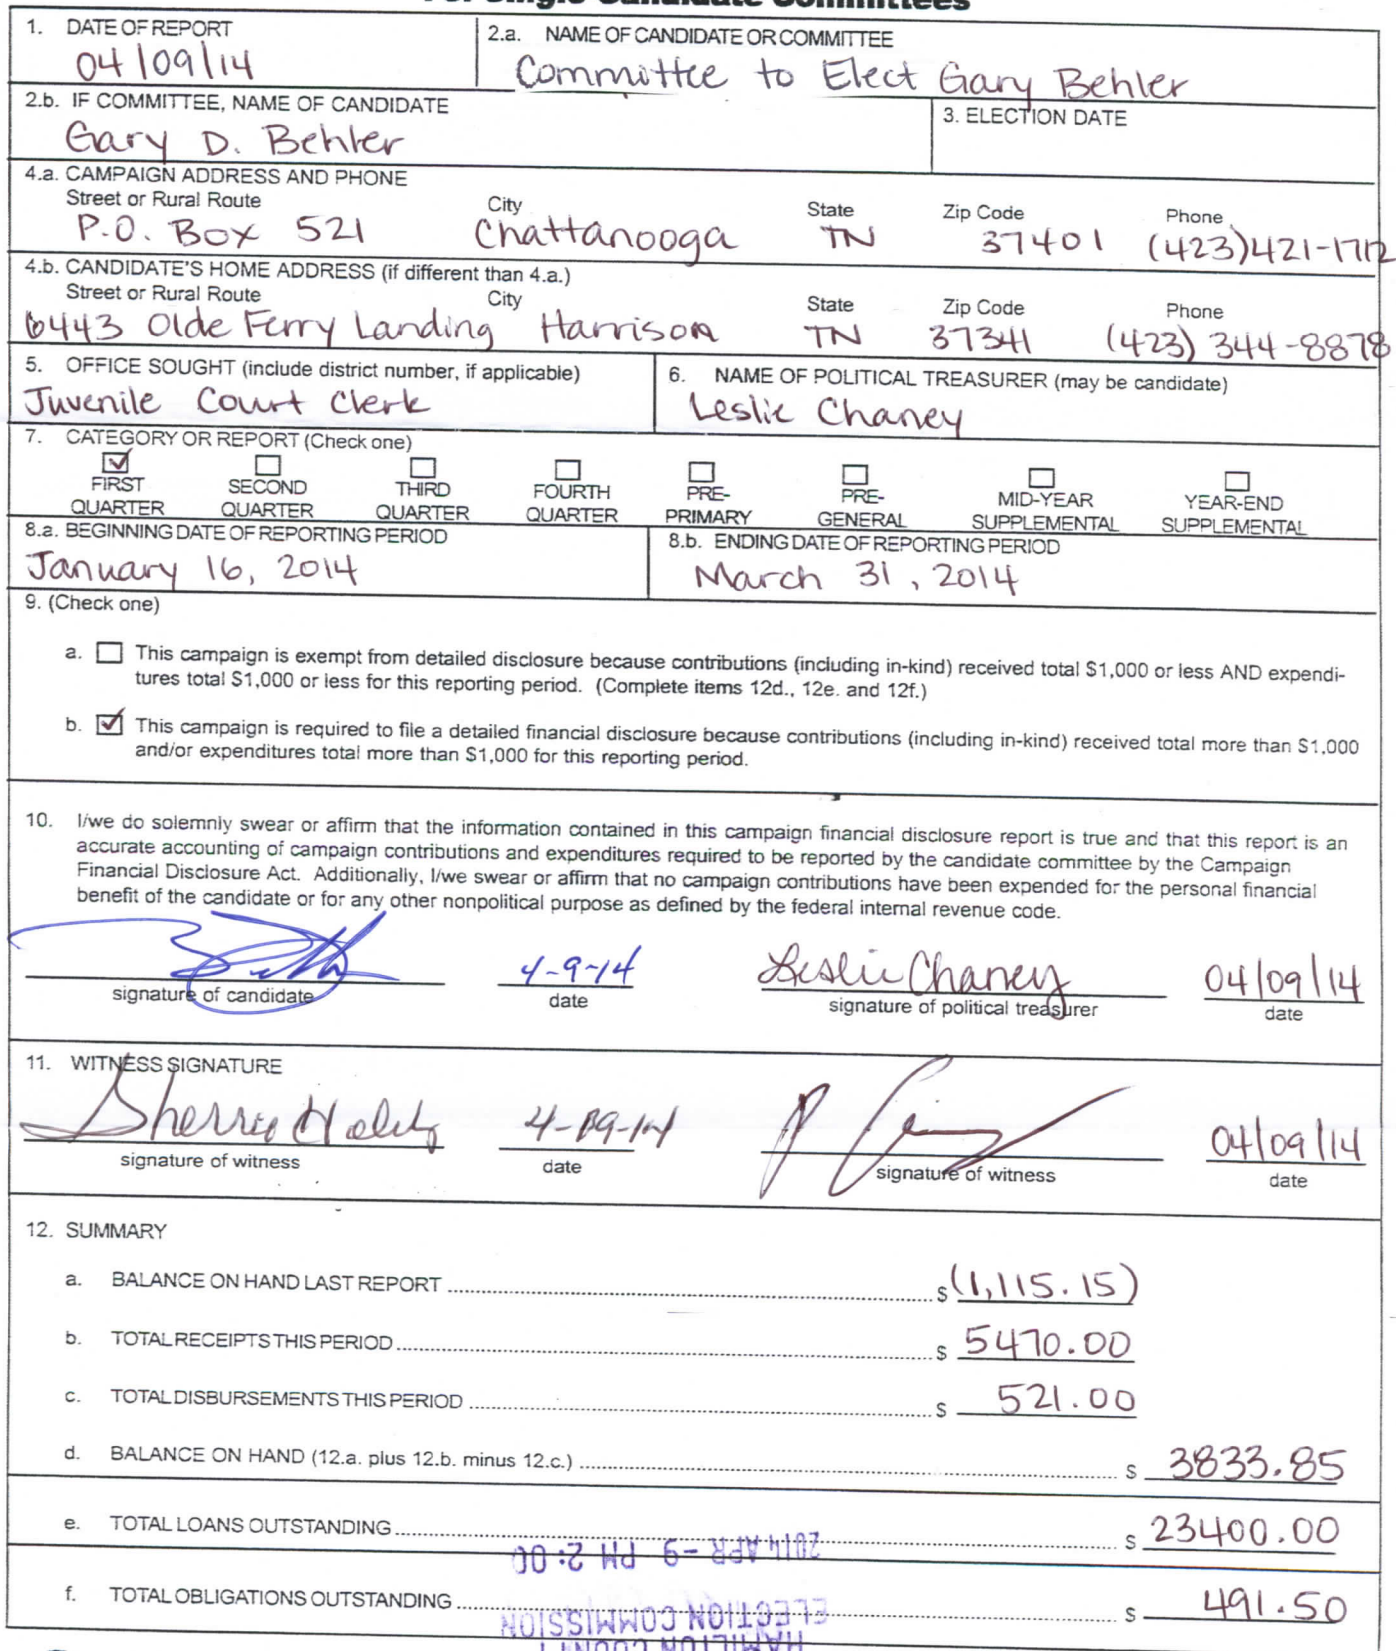 For Single-Candidate Committees
1. DATE OF REPORT
04/09/14
2.a. NAME OF CANDIDATE OR COMMITTEE
Committee to Elect Gary Behler
2.b. IF COMMITTEE, NAME OF CANDIDATE
Gary D. Behler
3. ELECTION DATE
4.a. CAMPAIGN ADDRESS AND PHONE
Street or Rural Route City State Zip Code Phone
P.O. Box 521 Chattanooga TN 37401 (423)421-1712
4.b. CANDIDATE'S HOME ADDRESS (if different than 4.a.)
Street or Rural Route City State Zip Code Phone
6443 Olde Ferry Landing Harrison TN 37341 (423) 344-8878
5. OFFICE SOUGHT (include district number, if applicable)
Juvenile Court Clerk
6. NAME OF POLITICAL TREASURER (may be candidate)
Leslie Chaney
7. CATEGORY OR REPORT (Check one)
FIRST QUARTER
SECOND QUARTER
THIRD QUARTER
FOURTH QUARTER
PRE-PRIMARY
PRE-GENERAL
MID-YEAR SUPPLEMENTAL
YEAR-END SUPPLEMENTAL
8.a. BEGINNING DATE OF REPORTING PERIOD
January 16, 2014
8.b. ENDING DATE OF REPORTING PERIOD
March 31, 2014
9. (Check one)
a. This campaign is exempt from detailed disclosure because contributions (including in-kind) received total $1,000 or less AND expendi-
tures total $1,000 or less for this reporting period. (Complete items 12d., 12e. and 12f.)
b. This campaign is required to file a detailed financial disclosure because contributions (including in-kind) received total more than $1,000
and/or expenditures total more than $1,000 for this reporting period.
10. I/we do solemnly swear or affirm that the information contained in this campaign financial disclosure report is true and that this report is an
accurate accounting of campaign contributions and expenditures required to be reported by the candidate committee by the Campaign
Financial Disclosure Act. Additionally, I/we swear or affirm that no campaign contributions have been expended for the personal financial
benefit of the candidate or for any other nonpolitical purpose as defined by the federal internal revenue code.
4-9-14 Leslie Chaney 04/09/14
signature of candidate date signature of political treasurer date
11. WITNESS SIGNATURE
Sherrie 04/09/14
signature of witness date signature of witness date
12. SUMMARY
a. BALANCE ON HAND LAST REPORT $ (1,115.15)
b. TOTAL RECEIPTS THIS PERIOD $ 5470.00
c. TOTAL DISBURSEMENTS THIS PERIOD $ 521.00
d. BALANCE ON HAND (12.a. plus 12.b. minus 12.c.) $ 3833.85
e. TOTAL LOANS OUTSTANDING $ 23400.00
2014 APR -9 PM 2:00
f. TOTAL OBLIGATIONS OUTSTANDING $ 491.50
ELECTION COMMISSION
HAMILTON COUNTY